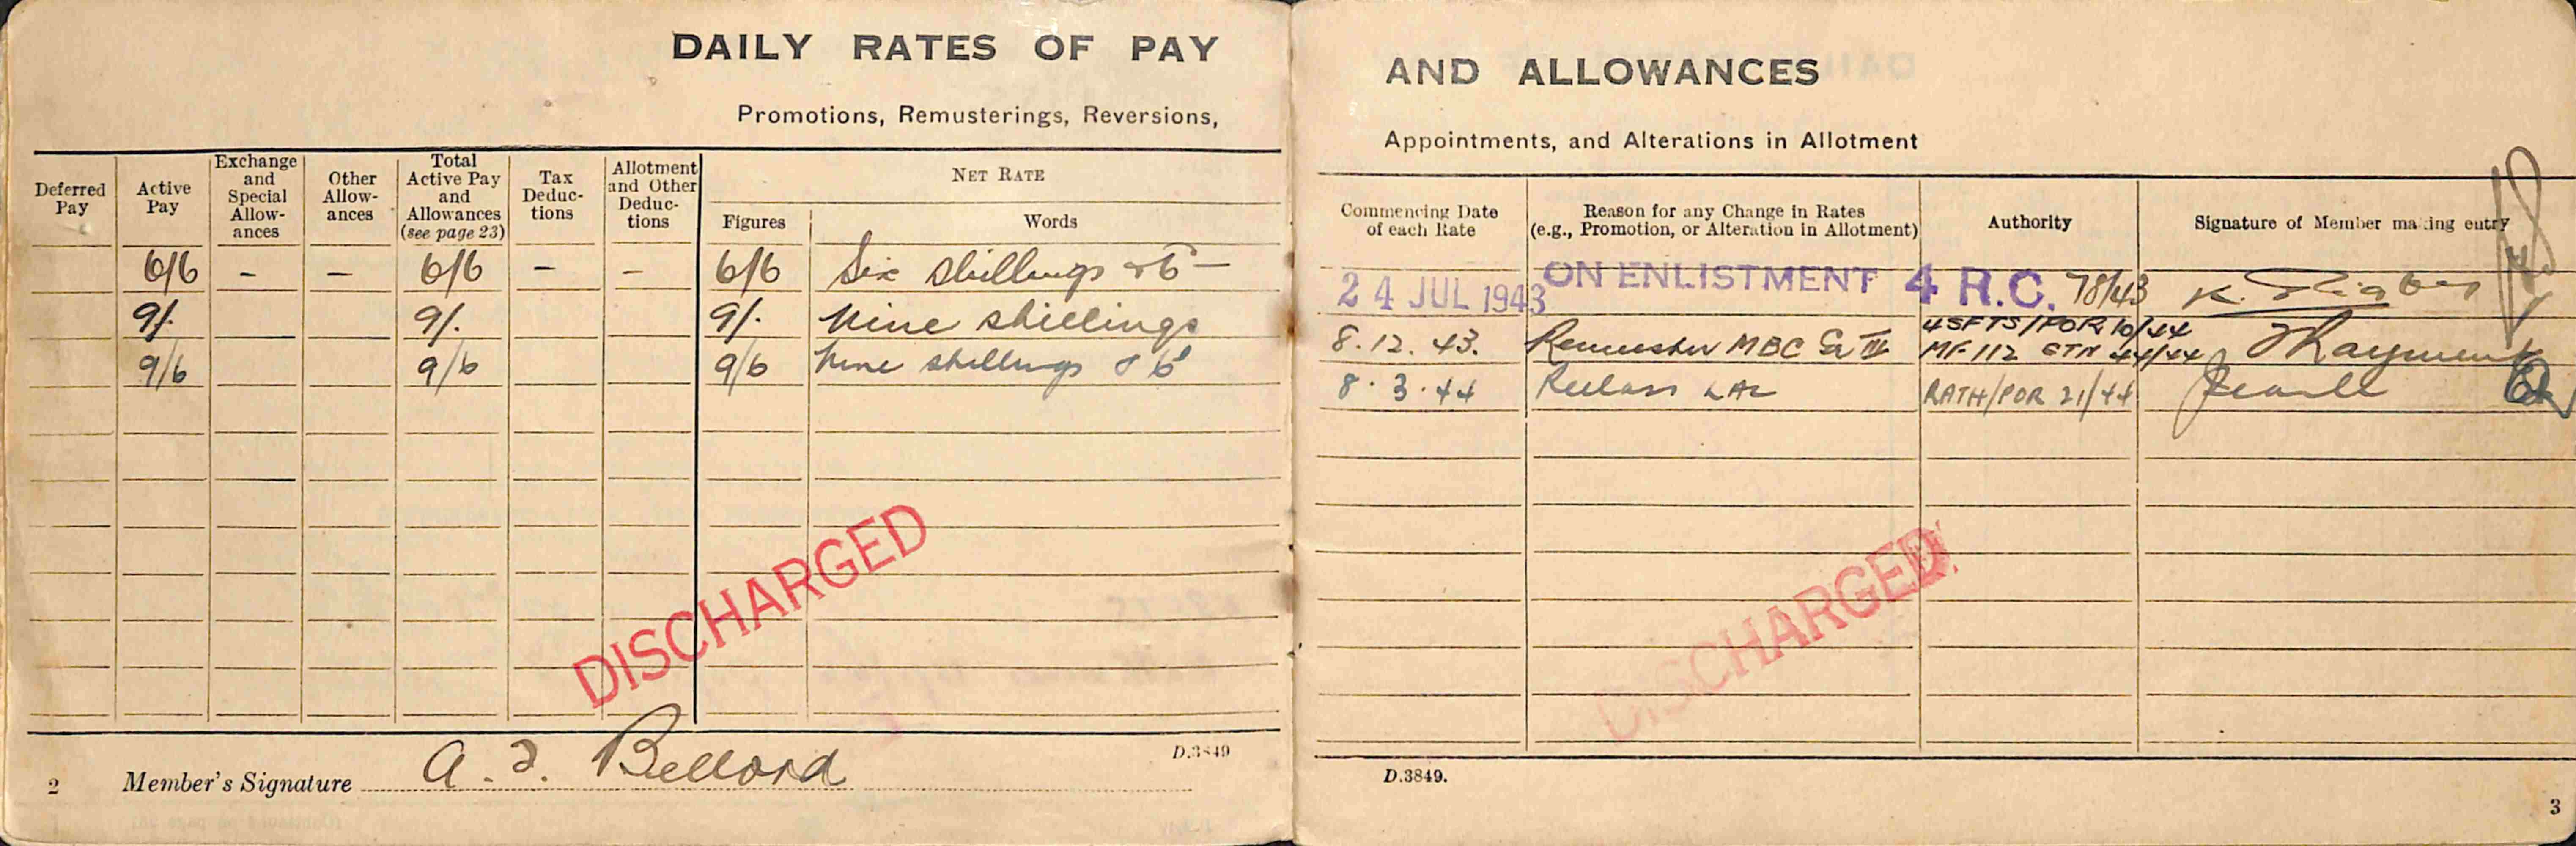 DAILY RATES OF PAY
Promotions, Remusterings, Reversions,
Deferred Pay
Active Pay
Exchange and Special Allow-ances
Other Allow-ances
Total Active Pay and Allowances (see page 23)
Tax Deduc-tions
Allotment and Other Deduc-tions
NET RATE
Figures
Words
6/6 - - 6/6 - - 6/6 Six shillings & 6 —
9/. 9/. 9/. Nine shillings
9/6 9/6 9/6 Nine shillings & 6d
DISCHARGED
2 Member's Signature A. J. Bellord
D.3849
AND ALLOWANCES
Appointments, and Alterations in Allotment
Commencing Date of each Rate
Reason for any Change in Rates (e.g., Promotion, or Alteration in Allotment)
Authority
Signature of Member making entry
24 JUL 1943 ON ENLISTMENT 4 R.C. 78/43 K.
4SFTS/POR 10/44
8.12.43. Remuster MBC Gr III MF 112 CTN 44/44
8.3.44 Reclass LAC RATH/POR 21/44
DISCHARGED
D.3849.
3